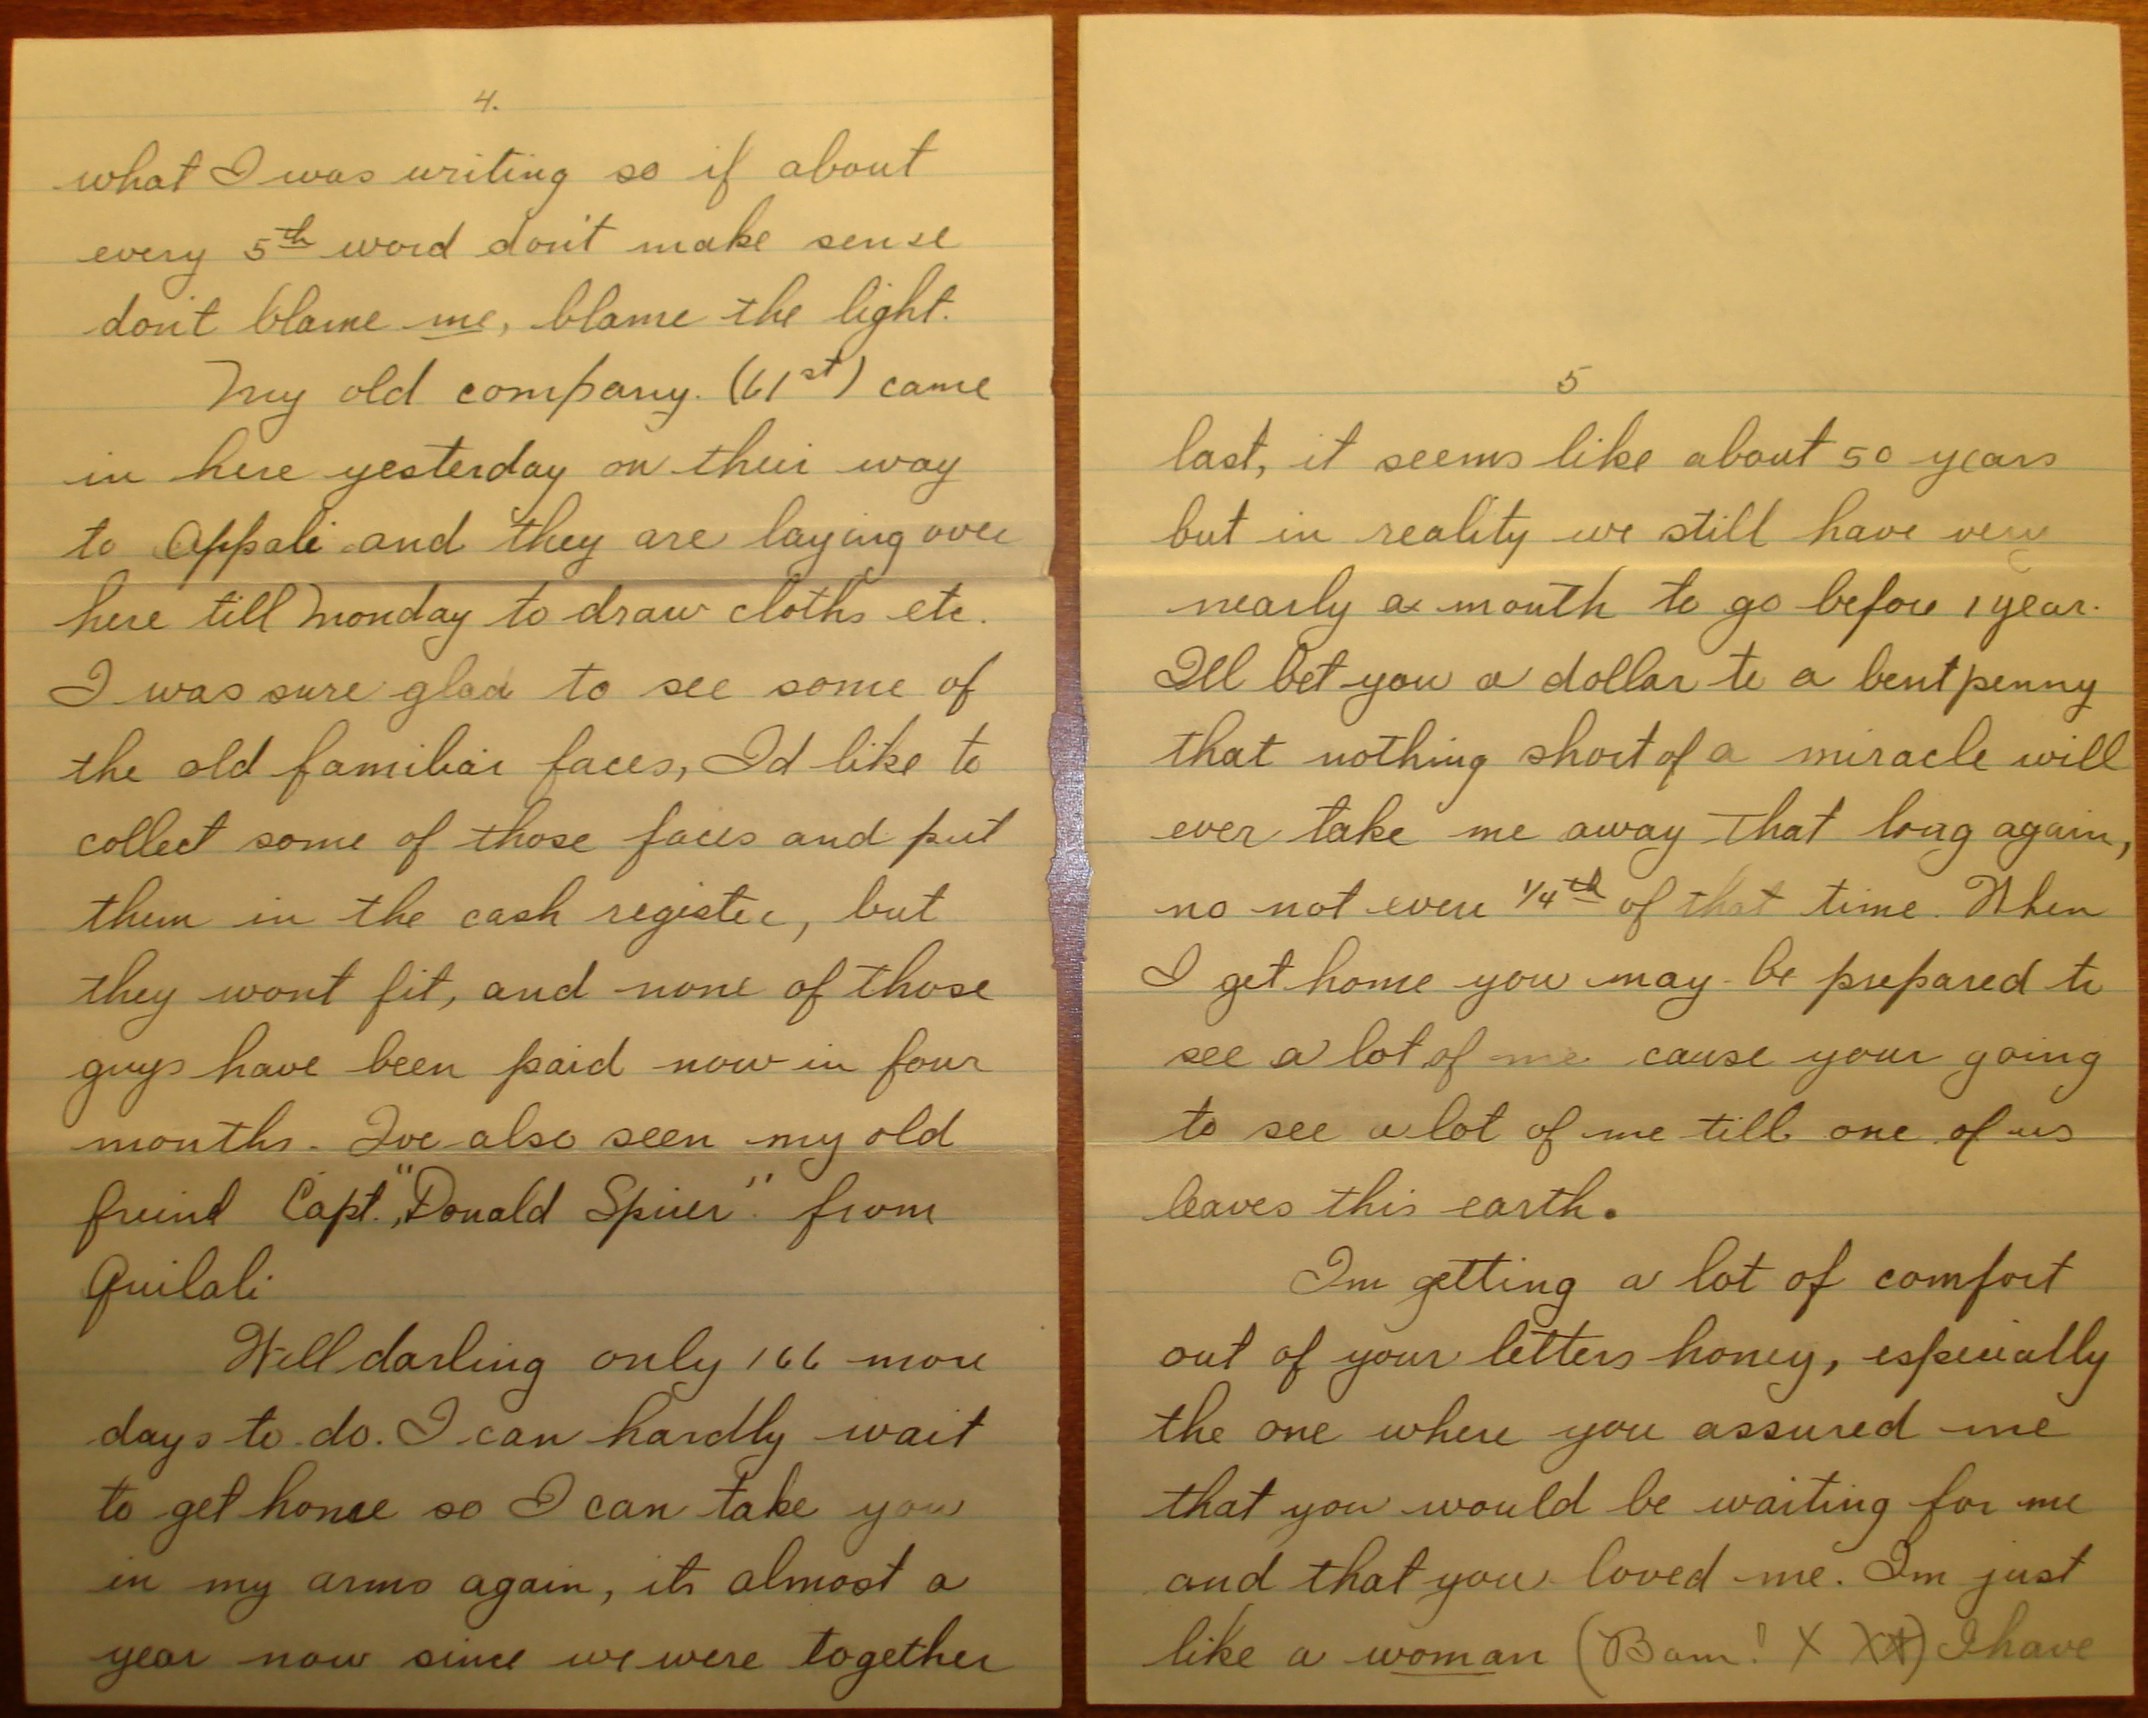 4.
what I was writing so if about
every 5th word don't make sense
don't blame me, blame the light.
My old company. (61st) came
in here yesterday on their way
to Appali and they are laying over
here till Monday to draw cloths etc.
I was sure glad to see some of
the old familiar faces, I'd like to
collect some of those faces and put
them in the cash register, but
they wont fit, and none of those
guys have been paid now in four
months. Ive also seen my old
freind Capt. "Donald Spicer" from
Quilali
Well darling only 166 more
days to do. I can hardly wait
to get home so I can take you
in my arms again, its almost a
year now since we were together
5
last, it seems like about 50 years
but in reality we still have very
nearly a month to go before 1 year.
Ill bet you a dollar to a bent penny
that nothing short of a miracle will
ever take me away that long again,
no not even 1/4th of that time. When
I get home you may be prepared to
see a lot of me cause your going
to see a lot of me till one of us
leaves this earth.
Im getting a lot of comfort
out of your letters honey, especially
the one where you assured me
that you would be waiting for me
and that you loved me. Im just
like a woman (Bam! X XX) I have